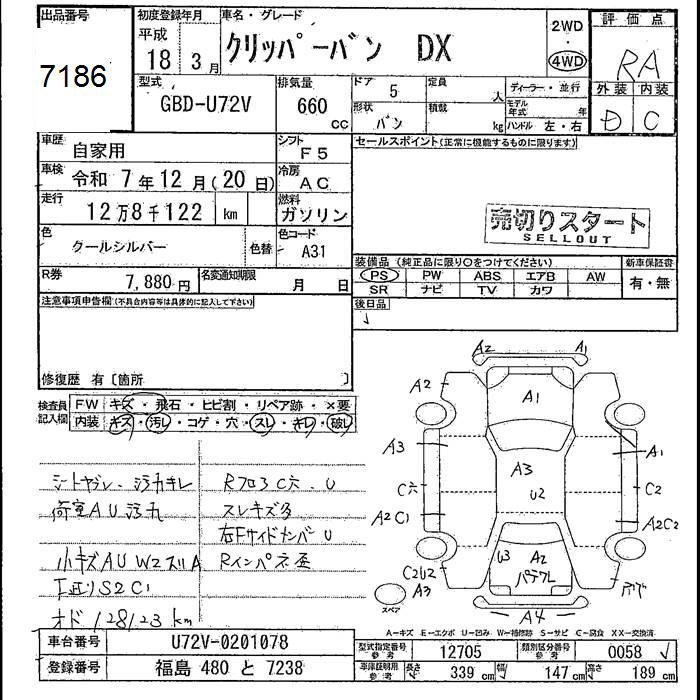 出品番号
7186
初度登録年月
平成
18 3月
車名・グレード
クリッパーバン DX
2WD
4WD
評価点
RA
外装 内装
D C
型式
GBD-U72V
排気量
660
cc
ドア
5
定員
人
形状
バン
積載
kg
ディーラー・並行
モデル年式 年
ハンドル 左・右
車歴
自家用
シフト
F5
セールスポイント(正常に機能するものに限ります)
車検
令和 7年12月(20日)
冷房
AC
走行
12万8千122 km
燃料
ガソリン
売切りスタート
SELLOUT
色
クールシルバー
色替
色コード
A31
装備品(純正品に限り〇をつけてください)
新車保証書
PS PW ABS エアB AW
SR ナビ TV カワ
有・無
R券
7,880円
名変通知期限
月 日
後日品
注意事項申告欄(不具合内容等は具体的に記入して下さい)
修復歴 有〔箇所 〕
検査員記入欄
FW キズ・飛石・ヒビ割・リペア跡・×要
内装 キズ・汚レ・コゲ・穴・スレ・キレ・破レ
シートヤブレ・汚れキレ
荷室AU汚れ
小キズAU W2スリA
下廻りS2C1
オド128123km
RフロアC穴・U
スレキズ多
左FサイドメンバーU
Rインパネ歪
A2 A1
A2
A1
A3
A1
A3
U2
C穴
C2
A2C1
A2C2
U3
A2
C2U2
A3
スペア
A4
A-キズ E-エクボ U-凹み W-補修跡 S-サビ C-腐食 XX-交換済
車台番号
U72V-0201078
登録番号
福島 480 と 7238
型式指定番号 参考
12705
類別区分番号 参考
0058
車庫証明用 参考
長さ 339 cm 幅 147 cm 高さ 189 cm